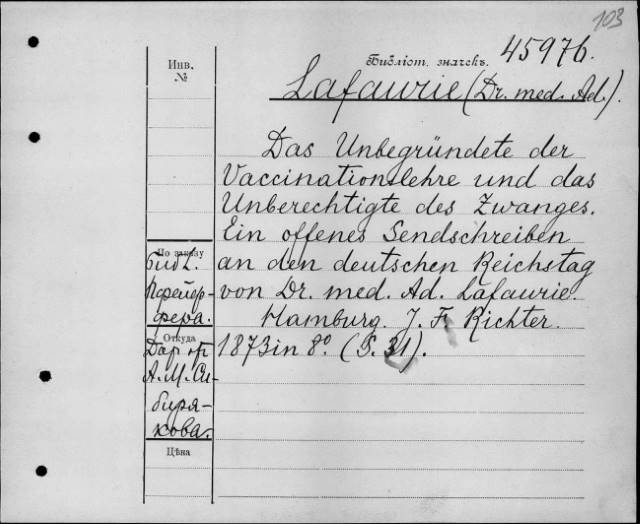 103
Инв.
№
Библіот. значекъ. 45976.
Lafaurie (Dr. med. Ad.).
Das Unbegründete der
Vaccinationslehre und das
Unberechtigte des Zwanges.
Ein offenes Sendschreiben
an den deutschen Reichstag
von Dr. med. Ad. Lafaurie.
Hamburg. J. F. Richter.
1873 in 8º. (S. 31).
По заказу
Библ.
Пфейф-
фера.
Откуда
Дар от
А. М. Си-
биря-
кова.
Цѣна